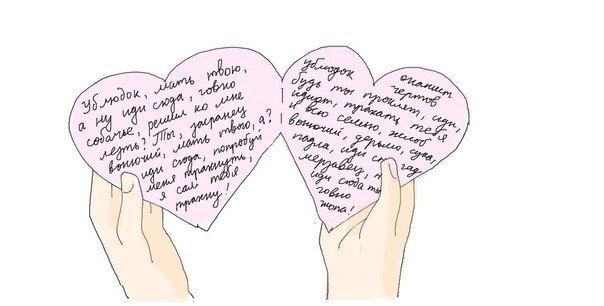 Ублюдок, мать твою,
а ну иди сюда, говно
собачье, решил ко мне
лезть? Ты, засранец
вонючий, мать твою, а?
иди сюда, попробуй
меня трахнуть,
я сам тебя
трахну!
ублюдок
онанист
чертов
будь ты проклят, иди,
идиот, трахать тебя
и всю семью, жлоб
вонючий, дерьмо, сука,
падла, иди сюда, гад
мерзавец,
иди сюда ты
говно
жопа!